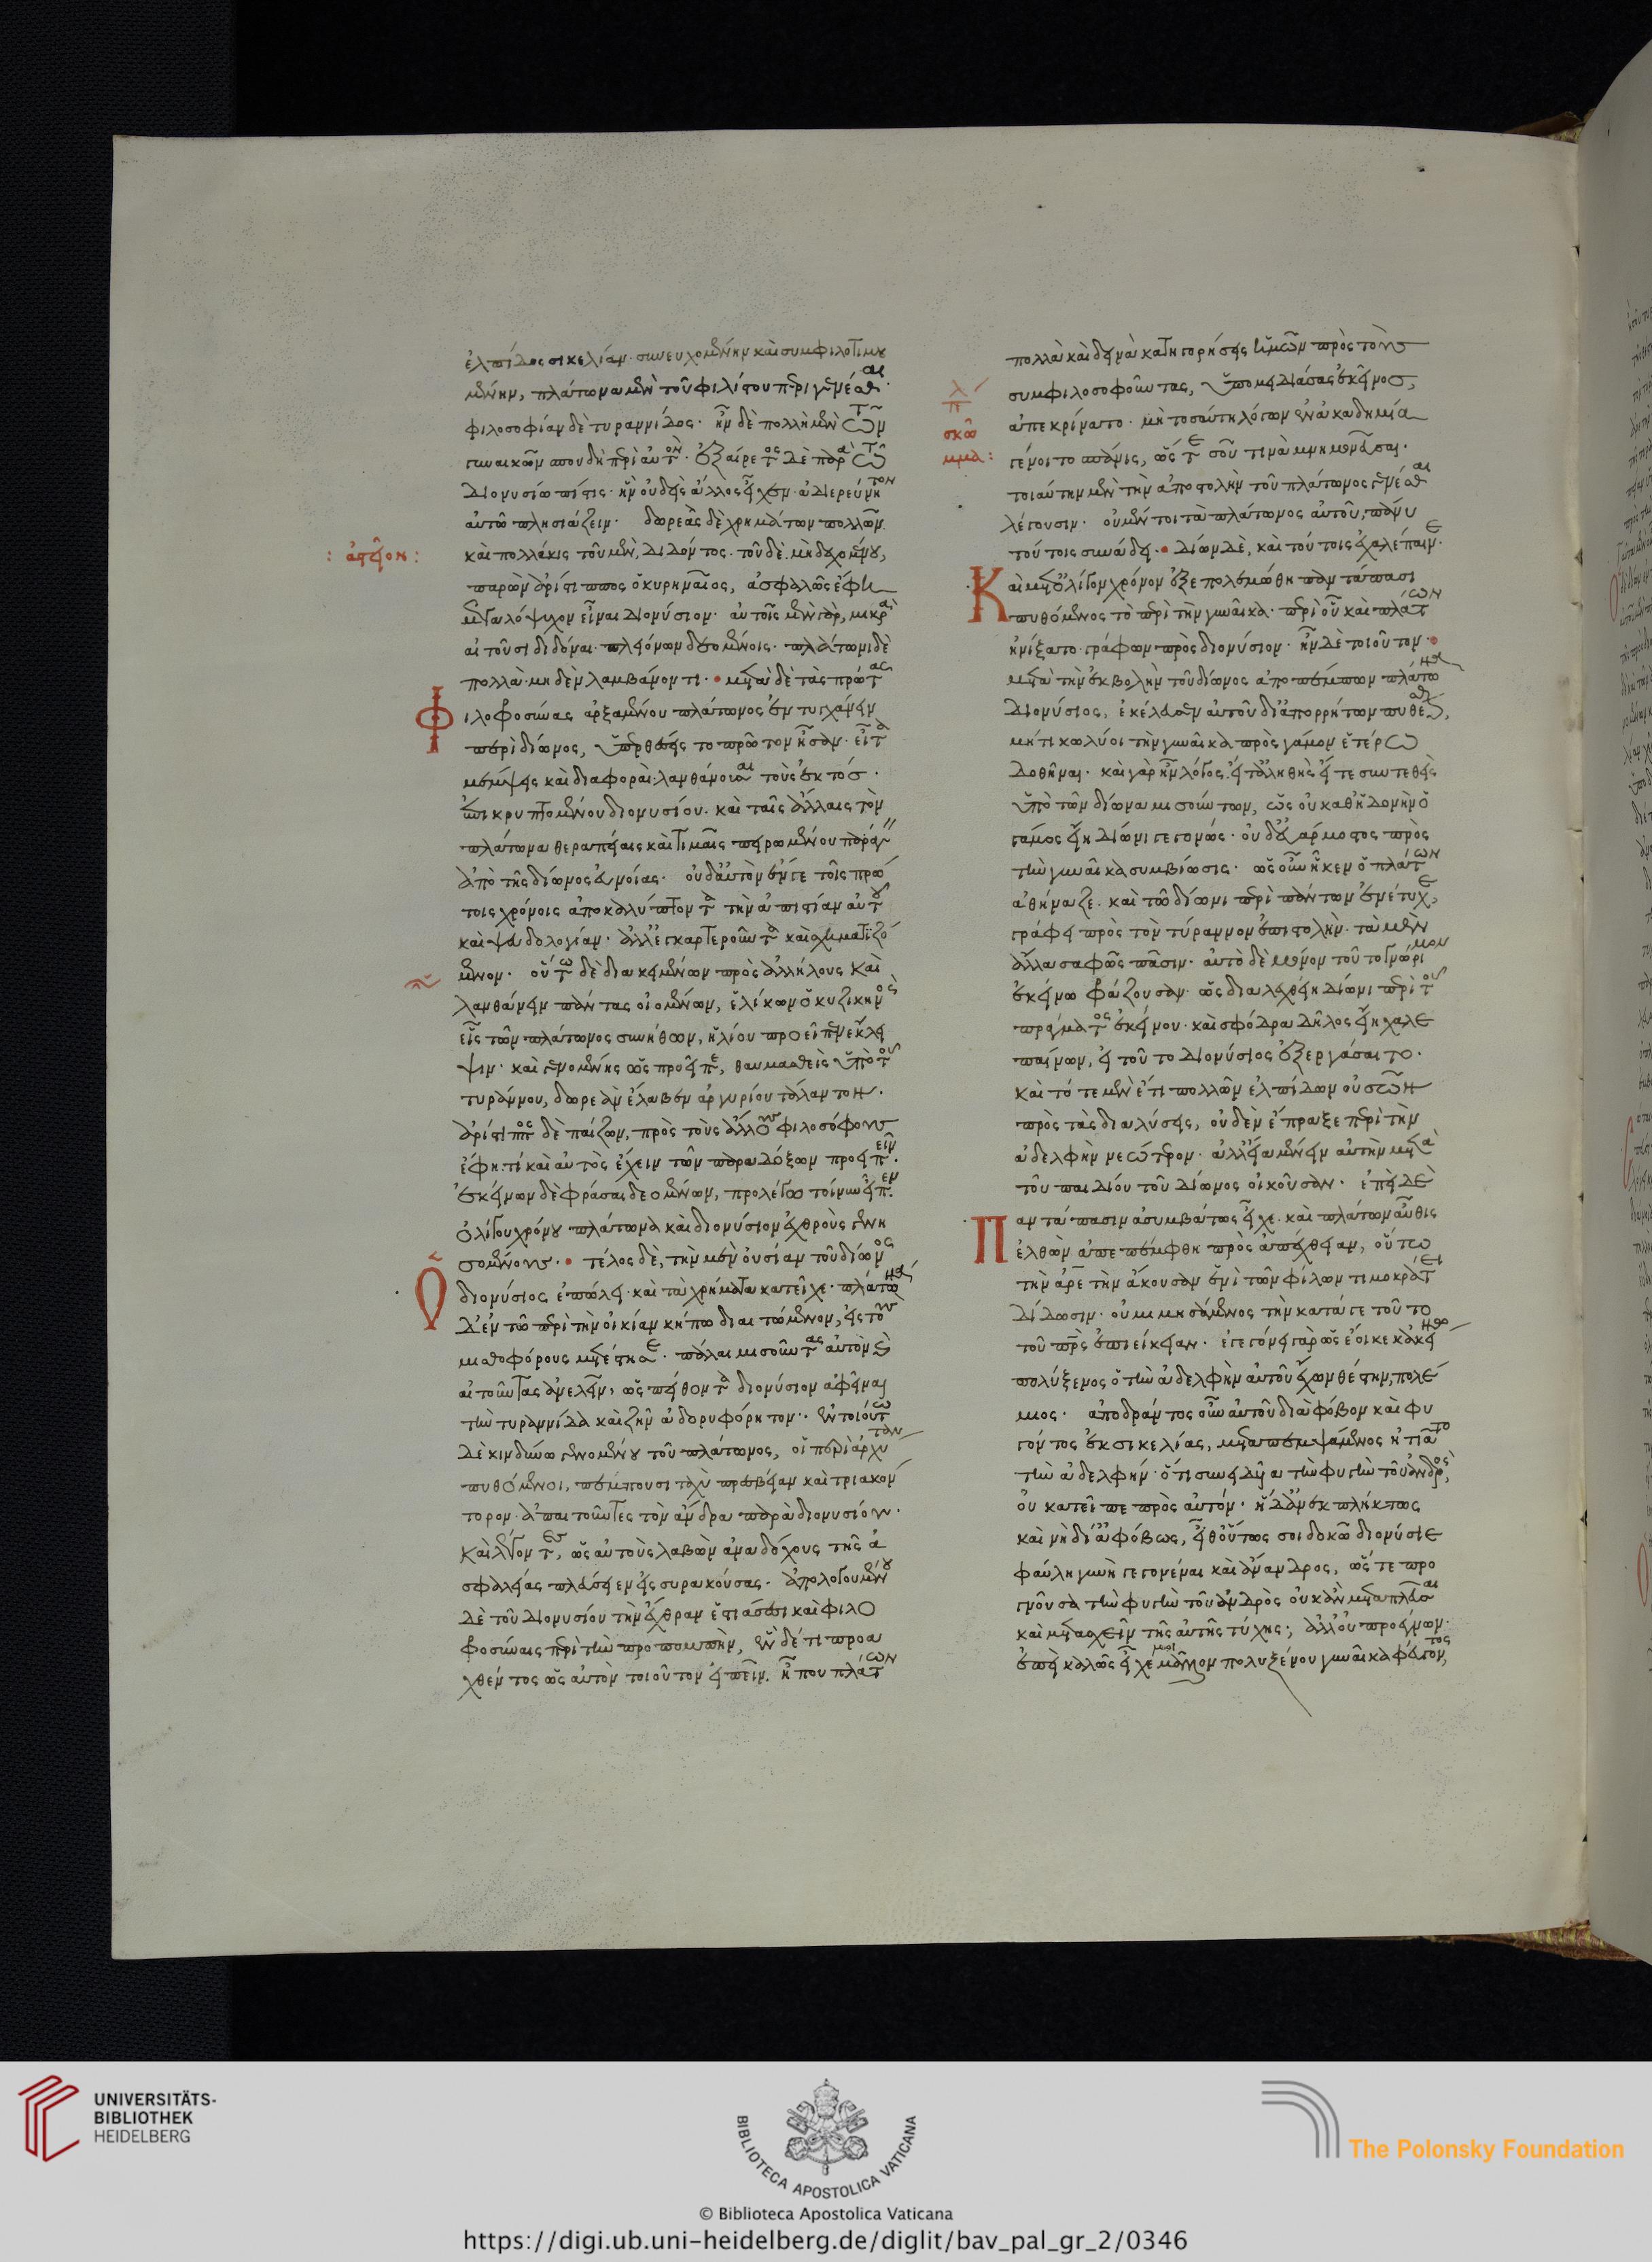 ἐλπίδος σικελίαν συνευχομένην καὶ συμφιλοτιμου
μένην, πλάτωνα μὲν τοῦ φιλίστου περιγενέσθαι·
φιλοσοφίαν δὲ τυραννίδος· ἦν δὲ πολλὴ μὲν τῶν
γυναικῶν σπουδὴ περὶ αὐτόν· ἐξαίρετος δὲ παρὰ τῶ
Διονυσίω πίστις· ἣν οὐδεὶς ἄλλος εἶχεν· ἀδιερεύνητον
αὐτῶ πλησιάζειν· δωρεὰς δὲ χρημάτων πολλῶν
: ἀστεῖον :
καὶ πολλάκις τοῦ μὲν, διδόντος· τοῦ δὲ, μὴ δεχομένου,
παρὼν ἀρίστιππος ὁ κυρηναῖος, ἀσφαλῶς ἔφη
μεγαλόψυχον εἶναι διονύσιον· αὐτοῖς μὲν γὰρ, μικρὰ
αἰτοῦσι διδόναι πλειόνων δεομένοις· πλάτωνι δὲ
πολλὰ μηδὲν λαμβάνοντι· μετὰ δὲ τὰς πρώτας
Φιλοφροσύνας ἀρξαμένου πλάτωνος ἐντυγχάνειν
περὶ δίωνος, ὑπερθέσεις τὸ πρῶτον ἦσαν· εἶτα
μέμψεις καὶ διαφοραὶ λανθάνουσαι τοὺς ἐκτός·
ἐπικρυπτομένου διονυσίου· καὶ ταῖς ἄλλαις τὸν
πλάτωνα θεραπείαις καὶ τιμαῖς πειρωμένου παράγειν
ἀπὸ τῆς δίωνος εὐνοίας· οὐδ' αὐτὸν ἔν γε τοῖς πρώ
τοις χρόνοις ἀποκαλύπτοντα τὴν ἀπιστίαν αὐτοῦ
καὶ ψευδολογίαν· ἀλλ' ἐγκαρτεροῦντα καὶ σχηματιζό
μενον· οὕτω δὲ διακειμένων πρὸς ἀλλήλους καὶ
λανθάνειν πάντας οἰομένων, ἑλίκων ὁ κυζικηνὸς
εἷς τῶν πλάτωνος συνήθων, ἡλίου προεῖπεν ἔκλει
ψιν· καὶ γενομένης ὡς προεῖπε, θαυμασθεὶς ὑπὸ τοῦ
τυράννου, δωρεὰν ἔλαβεν ἀργυρίου τάλαντον·
ἀρίστιππος δὲ παίζων, πρὸς τοὺς ἄλλους φιλοσόφους
ἔφη τὶ καὶ αὐτὸς ἔχειν τῶν παραδόξων προειπεῖν·
ἐκείνων δὲ φράσαι δεομένων, προλέγω τοίνυν εἶπεν
ὀλίγου χρόνου πλάτωνα καὶ διονύσιον ἐχθροὺς γενη
σομένους· τέλος δὲ, τὴν μὲν οὐσίαν τοῦ δίωνος
Ὁ διονύσιος ἐπώλει· καὶ τὰ χρήματα κατεῖχε· πλάτωνα
δ' ἐν τῶ περὶ τὴν οἰκίαν κήπω διαιτώμενον, εἰς τοὺς
μισθοφόρους μετέστησε· πάλαι μισοῦντας αὐτὸν καὶ
αἰτοῦντας ἀνελεῖν, ὡς πείθοντα διονύσιον ἀφεῖναι
τὴν τυραννίδα καὶ ζῆν ἀδορυφόρητον· ἐν τοιούτω
δὲ κινδύνω γενομένου τοῦ πλάτωνος, οἱ περὶ ἀρχύταν
πυθόμενοι, πέμπουσι ταχὺ πρεσβείαν καὶ τριακόν
τορον· ἀπαιτοῦντες τὸν ἄνδρα παρὰ διονυσίου·
καὶ λέγοντες, ὡς αὐτοὺς λαβὼν ἀναδόχους τῆς ἀ
σφαλείας πλεύσειεν εἰς συρακούσας· ἀπολογουμένου
δὲ τοῦ διονυσίου τὴν ἔχθραν ἑστιάσεσι καὶ φιλο
φροσύναις περὶ τὴν προπομπὴν, ἓν δέ τι προα
χθέντος ὡς αὐτὸν τοιοῦτον εἰπεῖν· ἦ που πλάτων
πολλὰ καὶ δεινὰ κατηγορήσεις ἡμῶν πρὸς τοὺς
συμφιλοσοφοῦντας, ὑπομειδιάσας ἐκεῖνος,
ἀπεκρίνατο· μὴ τοσαύτη λόγων ἐν ἀκαδημία
σκῶ
μμα :
γένοιτο σπάνις, ὥστε σοῦ τινὰ μνημονεῦσαι·
τοιαύτην μὲν τὴν ἀποστολὴν τοῦ πλάτωνος γενέσθαι
λέγουσιν· οὐ μέντοι τὰ πλάτωνος αὐτοῦ, πάνυ
τούτοις συνάδει· δίων δὲ, καὶ τούτοις ἐχαλέπαινε·
Καὶ μετ' ὀλίγον χρόνον ἐξεπολεμώθη παντάπασι
πυθόμενος τὸ περὶ τὴν γυναῖκα· περὶ οὗ καὶ πλάτων
ἠνίξατο γράφων πρὸς διονύσιον· ἦν δὲ τοιοῦτον·
μετὰ τὴν ἐκβολὴν τοῦ δίωνος ἀποπέμπων πλάτωνα
Διονύσιος, ἐκέλευσεν αὐτοῦ δι' ἀπορρήτων πυθέσθαι,
μή τι κωλύοι τὴν γυναῖκα πρὸς γάμον ἑτέρω
δοθῆναι· καὶ γὰρ ἦν λόγος εἴτ' ἀληθὴς εἴτε συντεθεὶς
ὑπὸ τῶν δίωνα μισούντων, ὡς οὐ καθ' ἡδονὴν ὁ
γάμος εἴη Δίωνι γεγονώς· οὐδ' εὐάρμοστος πρὸς
τὴν γυναῖκα συμβίωσις· ὡς οὖν ἧκεν ὁ πλάτων
ἀθήναζε· καὶ τῶ δίωνι περὶ πάντων ἐνέτυχε,
γράφει πρὸς τὸν τύραννον ἐπιστολὴν· τὰ μὲν
ἄλλα σαφῶς πᾶσιν· αὐτὸ δὲ μόνον τοῦτο γνώριμον
ἐκείνω φράζουσαν· ὡς διαλεχθείη Δίωνι περὶ τοῦ
πράγματος ἐκείνου· καὶ σφόδρα δῆλος εἴη χαλε
παίνων, εἰ τοῦτο Διονύσιος ἐξεργάσαιτο·
καὶ τότε μὲν ἔτι πολλῶν ἐλπίδων οὐσῶν
πρὸς τὰς διαλύσεις, οὐδὲν ἔπραξε περὶ τὴν
ἀδελφὴν νεώτερον· ἀλλ' εἴα μένειν αὐτὴν μετὰ
τοῦ παιδίου τοῦ Δίωνος οἰκοῦσαν· ἐπεὶ δὲ
Παντάπασιν ἀσυμβάτως εἶχε· καὶ πλάτων αὖθις
ἐλθὼν ἀπεπέμφθη πρὸς ἀπέχθειαν, οὕτω
τὴν ἀρετὴν ἄκουσαν ἑνὶ τῶν φίλων τιμοκράτει
δίδωσιν· οὐ μιμησάμενος τὴν κατά γε τοῦτο
τοῦ πατρὸς ἐπιείκειαν· ἐγεγόνει γὰρ ὡς ἔοικε κἀκείνω
πολύξενος ὁ τὴν ἀδελφὴν αὐτοῦ ἔχων θέστην, πολέ
μιος· ἀποδράντος οὖν αὐτοῦ διὰ φόβον καὶ φυ
γόντος ἐκ σικελίας, μεταπεμψάμενος ἠτιᾶτο
τὴν ἀδελφήν· ὅτι συνειδυῖα τὴν φυγὴν τοῦ ἀνδρὸς,
οὐ κατεῖπε πρὸς αὐτόν· ἡ δ' ἀνεκπλήκτως
καὶ νὴ δί' ἀφόβως, εἶθ' οὕτως σοι δοκῶ διονύσιε
φαύλη γυνὴ γεγονέναι καὶ ἄνανδρος, ὥστε προ
γνοῦσα τὴν φυγὴν τοῦ ἀνδρὸς οὐκ ἂν μεταπλεῦσαι
καὶ μετασχεῖν τῆς αὐτῆς τύχης; ἀλλ' οὐ προέγνων·
ἐπεὶ καλῶς εἶχέ μοι μᾶλλον πολυξένου γυναῖκα φεύγοντος,
UNIVERSITÄTS-
BIBLIOTHEK
HEIDELBERG
BIBLIOTECA APOSTOLICA VATICANA
The Polonsky Foundation
© Biblioteca Apostolica Vaticana
https://digi.ub.uni-heidelberg.de/diglit/bav_pal_gr_2/0346